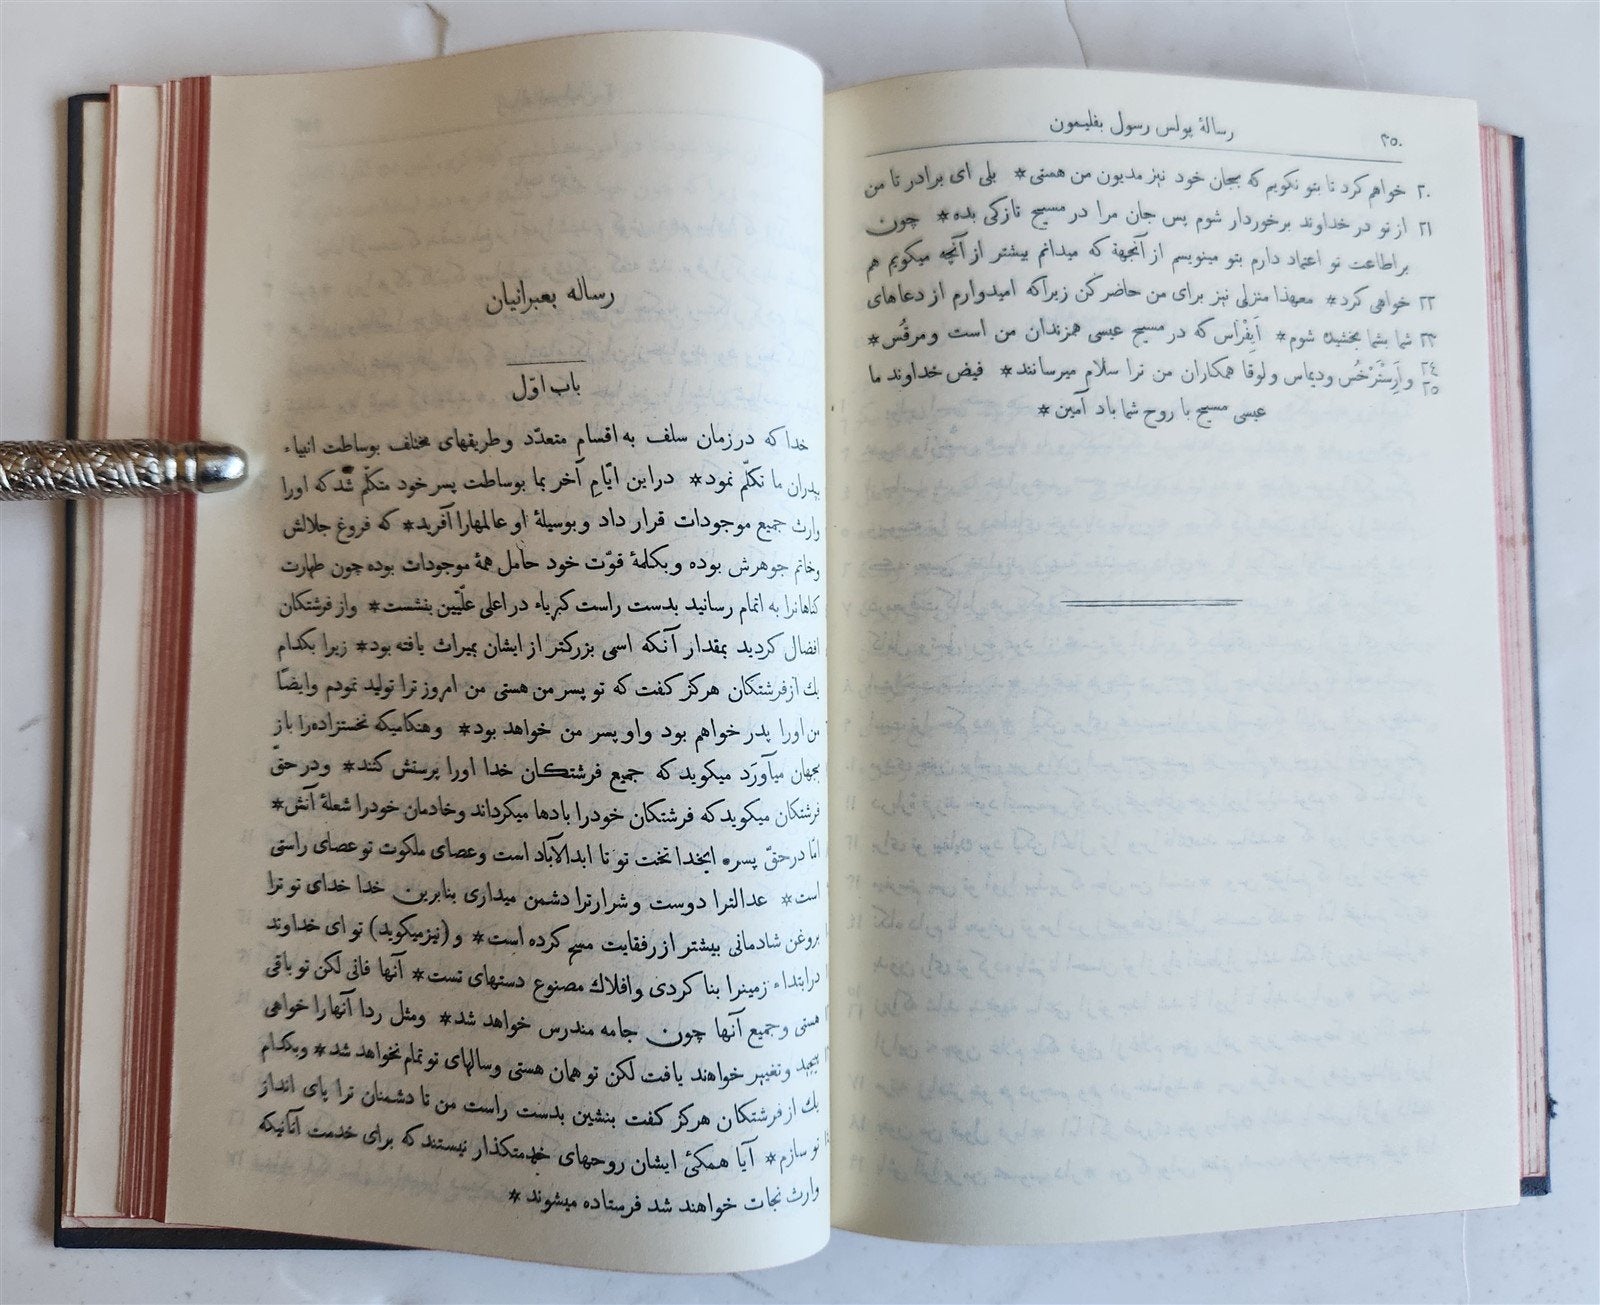 رسالهٔ پولس رسول بفلیمون
۳۵۰
۲۰ خواهم کرد تا بتو نکویم که بجان خود نیز مدیون من هستی* بلی ای برادر تا من
۲۱ از تو در خداوند برخوردار شوم پس جان مرا در مسیح تازکی بده* چون
بر اطاعت تو اعتماد دارم بتو مینویسم از آنجهة که میدانم بیشتر از آنچه میکویم هم
۲۲ خواهی کرد* معهذا منزلی نیز برای من حاضر کن زیرا که امیدوارم از دعاهای
۲۳ شما بشما بخشیده شوم* اَپِفْراس که در مسیح عیسی همزندان من است و مرقُس*
۲٤ و اَرِسْتَرْخُس و دیماس و لوقا همکاران من ترا سلام میرسانند* فیض خداوند ما
۲۵
عیسی مسیح با روح شما باد آمین*
رساله بعبرانیان
باب اوّل
خدا که در زمان سلف به اقسام متعدّد و طریقهای مختلف بوساطت انبیاء
بپدران ما تکلّم نمود* در این ایّامِ آخر بما بوساطت پسر خود متکلّم شد که اورا
وارث جمیع موجودات قرار داد و بوسیلهٔ او عالمهارا آفرید* که فروغ جلالش
وخاتم جوهرش بوده و بکلمهٔ قوّت خود حامل همهٔ موجودات بوده چون طهارت
کناهانرا به اتمام رسانید بدست راست کبریاء در اعلی علّیین بنشست* و از فرشتکان
افضال کردید بمقدار آنکه اسمی بزرکتر از ایشان بمیراث یافته بود* زیرا بکدام
یك از فرشتکان هرکز کفت که تو پسر من هستی من امروز ترا تولید نمودم وایضًا
من اورا پدر خواهم بود واو پسر من خواهد بود* وهنکامیکه نخستزاده‌را باز
بجهان میآورَد میکوید که جمیع فرشتکان خدا اورا پرستش کنند* ودر حقّ
فرشتکان میکوید که فرشتکان خودرا بادها میکرداند وخادمان خودرا شعلهٔ آتش*
امّا در حقّ پسر* ایخدا تخت تو تا ابدالآباد است وعصای ملکوت تو عصای راستی
است* عدالترا دوست وشرارترا دشمن میداری بنابرین خدا خدای تو ترا
بروغن شادمانی بیشتر از رفقایت مسح کرده است* و (نیز میکوید) تو ای خداوند
در ابتداء زمینرا بنا کردی وافلاك مصنوع دستهای تست* آنها فانی لکن تو باقی
هستی وجمیع آنها چون جامه مندرس خواهد شد* ومثل ردا آنهارا خواهی
پیچید وتغییر خواهند یافت لکن تو همان هستی وسالهای تو تمام نخواهد شد* وبکدام
یك از فرشتکان هرکز کفت بنشین بدست راست من تا دشمنان ترا پای انداز
تو سازم* آیا همکئ ایشان روحهای خدمتکذار نیستند که برای خدمت آنانیکه
وارث نجات خواهند شد فرستاده میشوند*